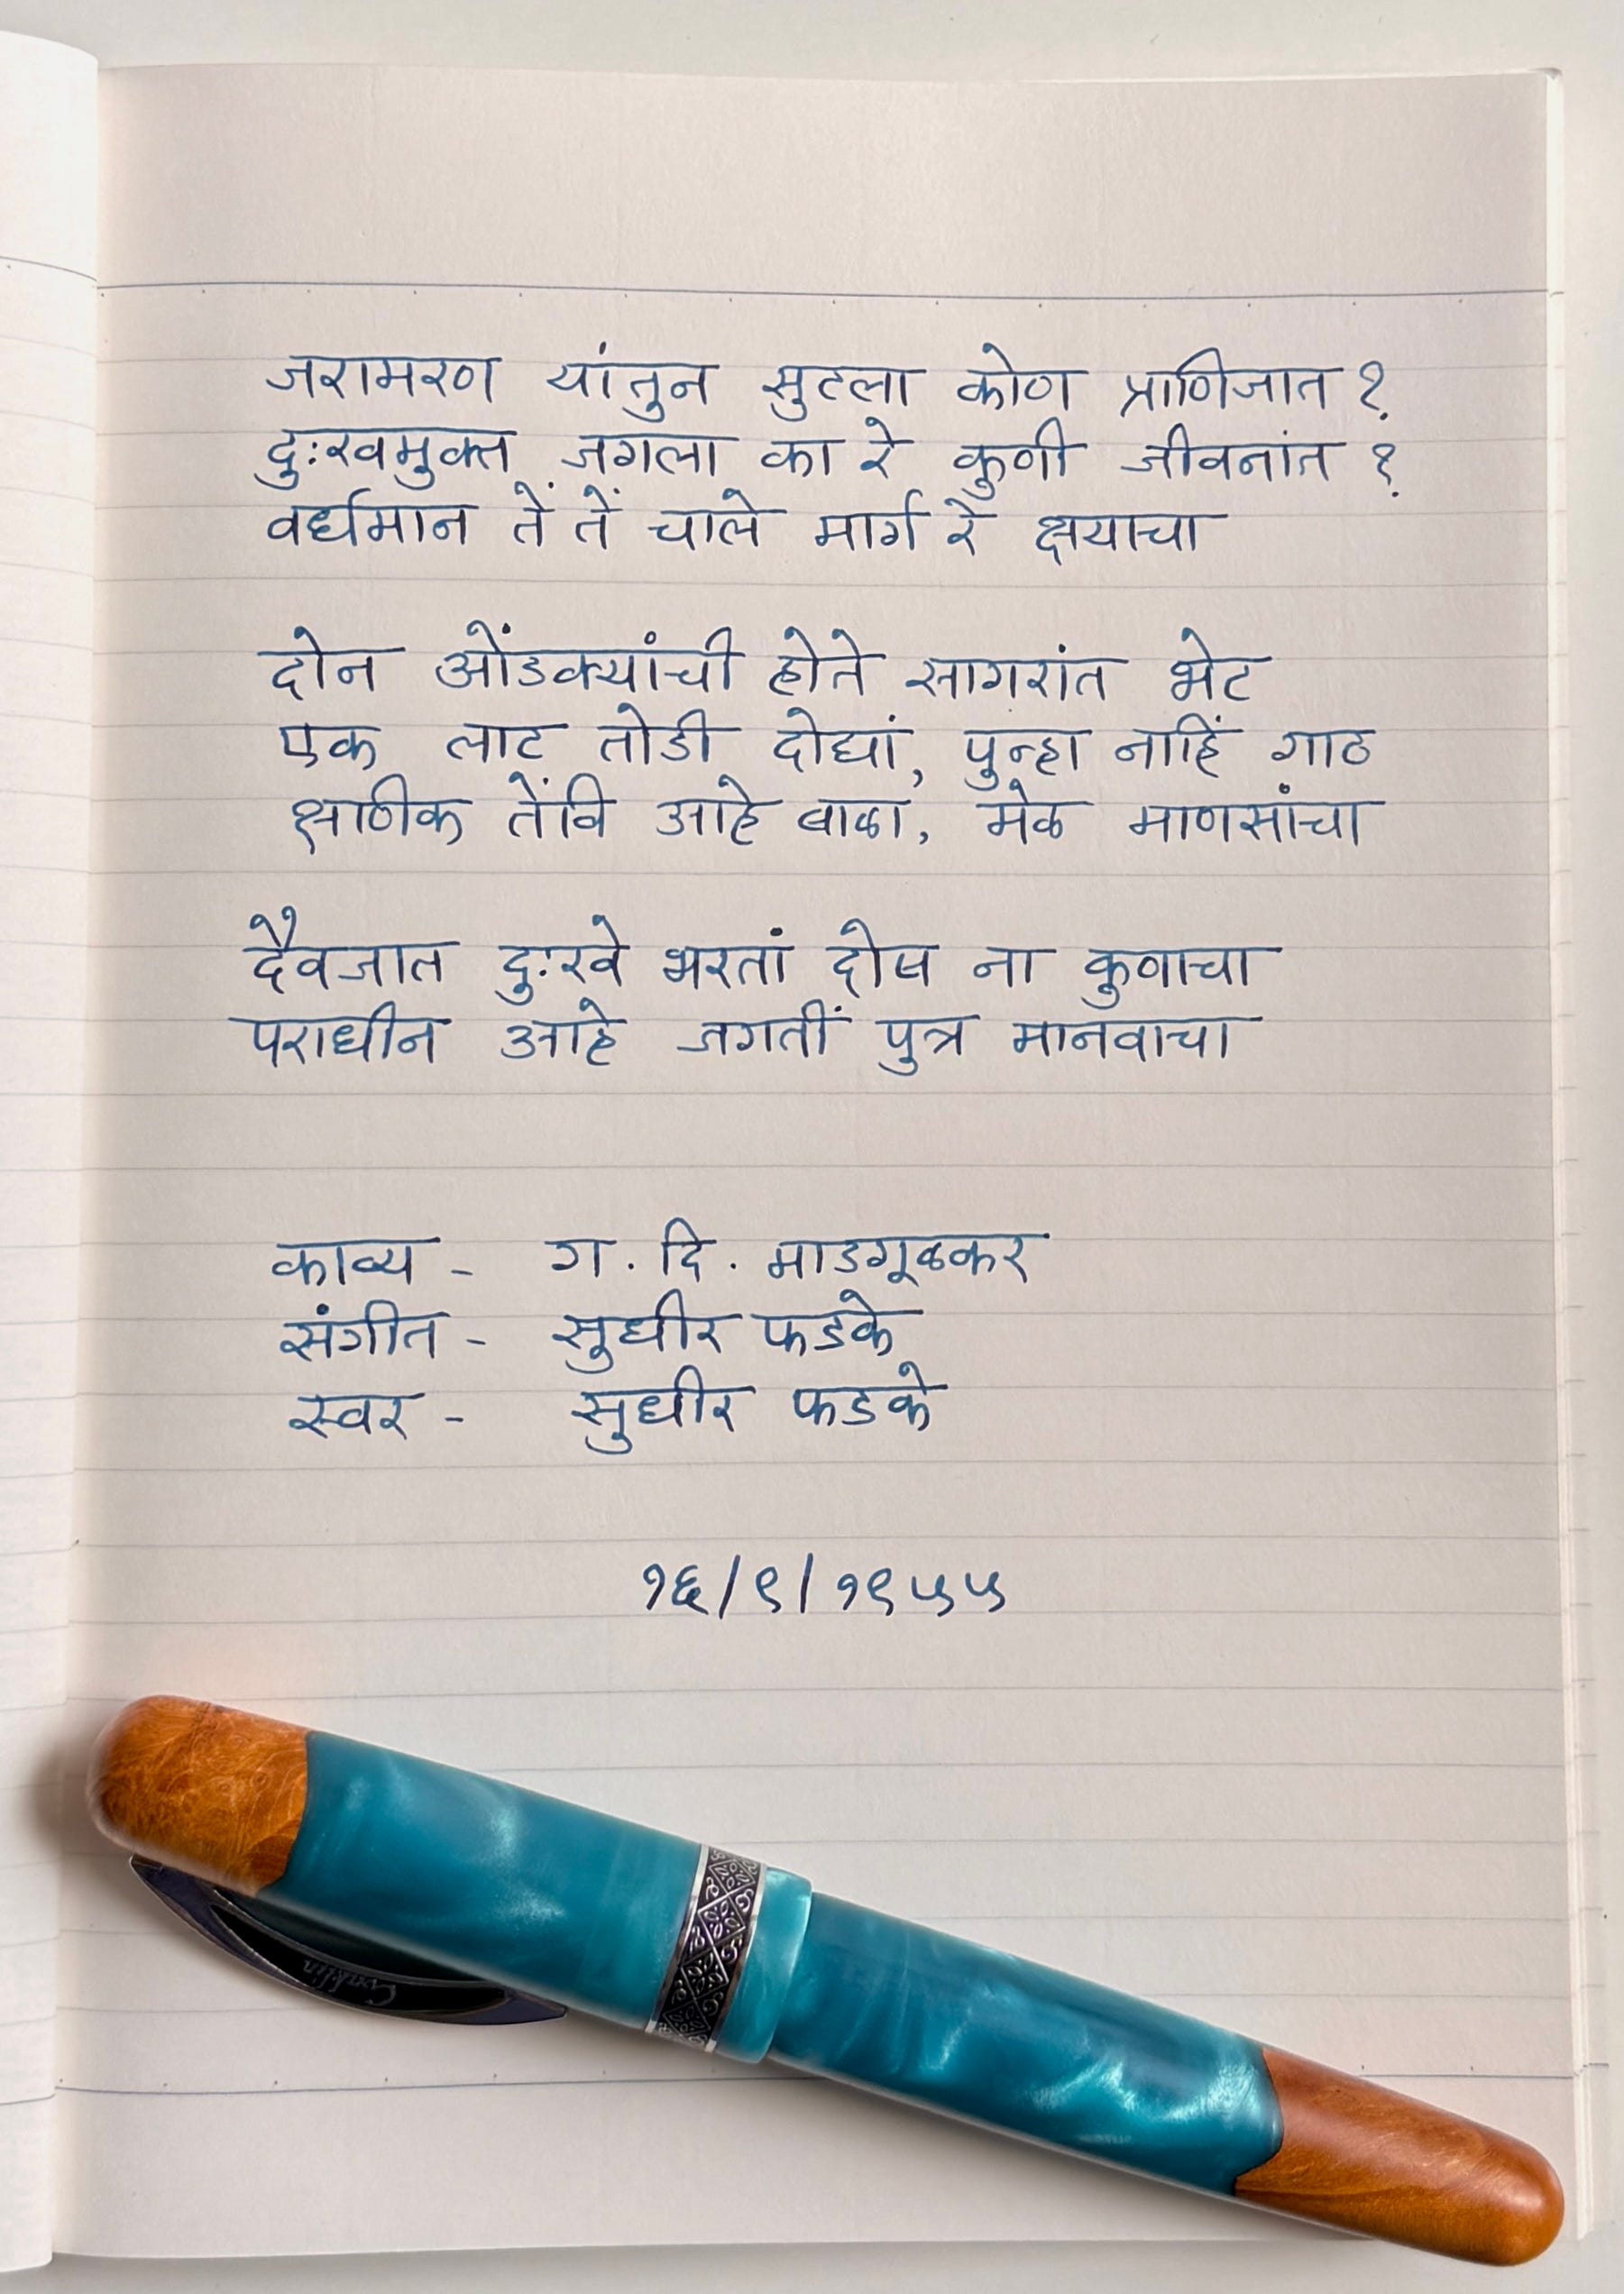 जरामरण यांतुन सुटला कोण प्राणिजात ?
दुःखमुक्त जगला का रे कुणी जीवनांत ?
वर्धमान तें तें चाले मार्ग रे क्षयाचा
दोन ओंडक्यांची होते सागरांत भेट
एक लाट तोडी दोघां, पुन्हा नाहिं गाठ
क्षणिक तेंवि आहे बाळा, मेळ माणसांचा
दैवजात दुःखे भरतां दोष ना कुणाचा
पराधीन आहे जगतीं पुत्र मानवाचा
काव्य - ग. दि. माडगूळकर
संगीत - सुधीर फडके
स्वर - सुधीर फडके
१६/९/१९५५
Conklin